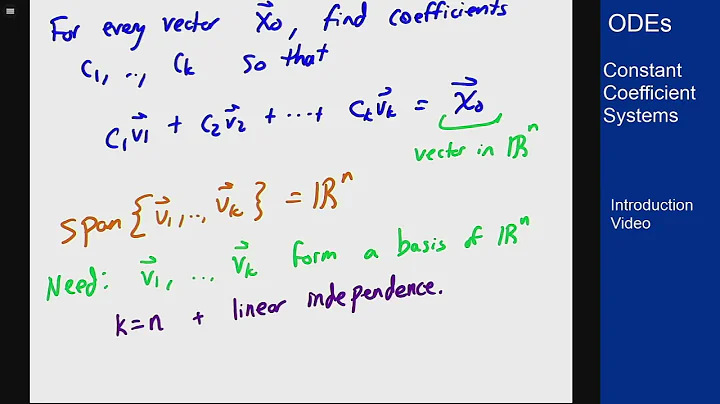 For every vector x⃗₀, find coefficients
c₁, .., cₖ so that
c₁v⃗₁ + c₂v⃗₂ + ⋯ + cₖv⃗ₖ = x⃗₀
vector in ℝⁿ
span{v⃗₁, .., v⃗ₖ} = ℝⁿ
Need: v⃗₁, ... v⃗ₖ form a basis of ℝⁿ
k=n + linear independence.
ODEs
Constant
Coefficient
Systems
Introduction
Video